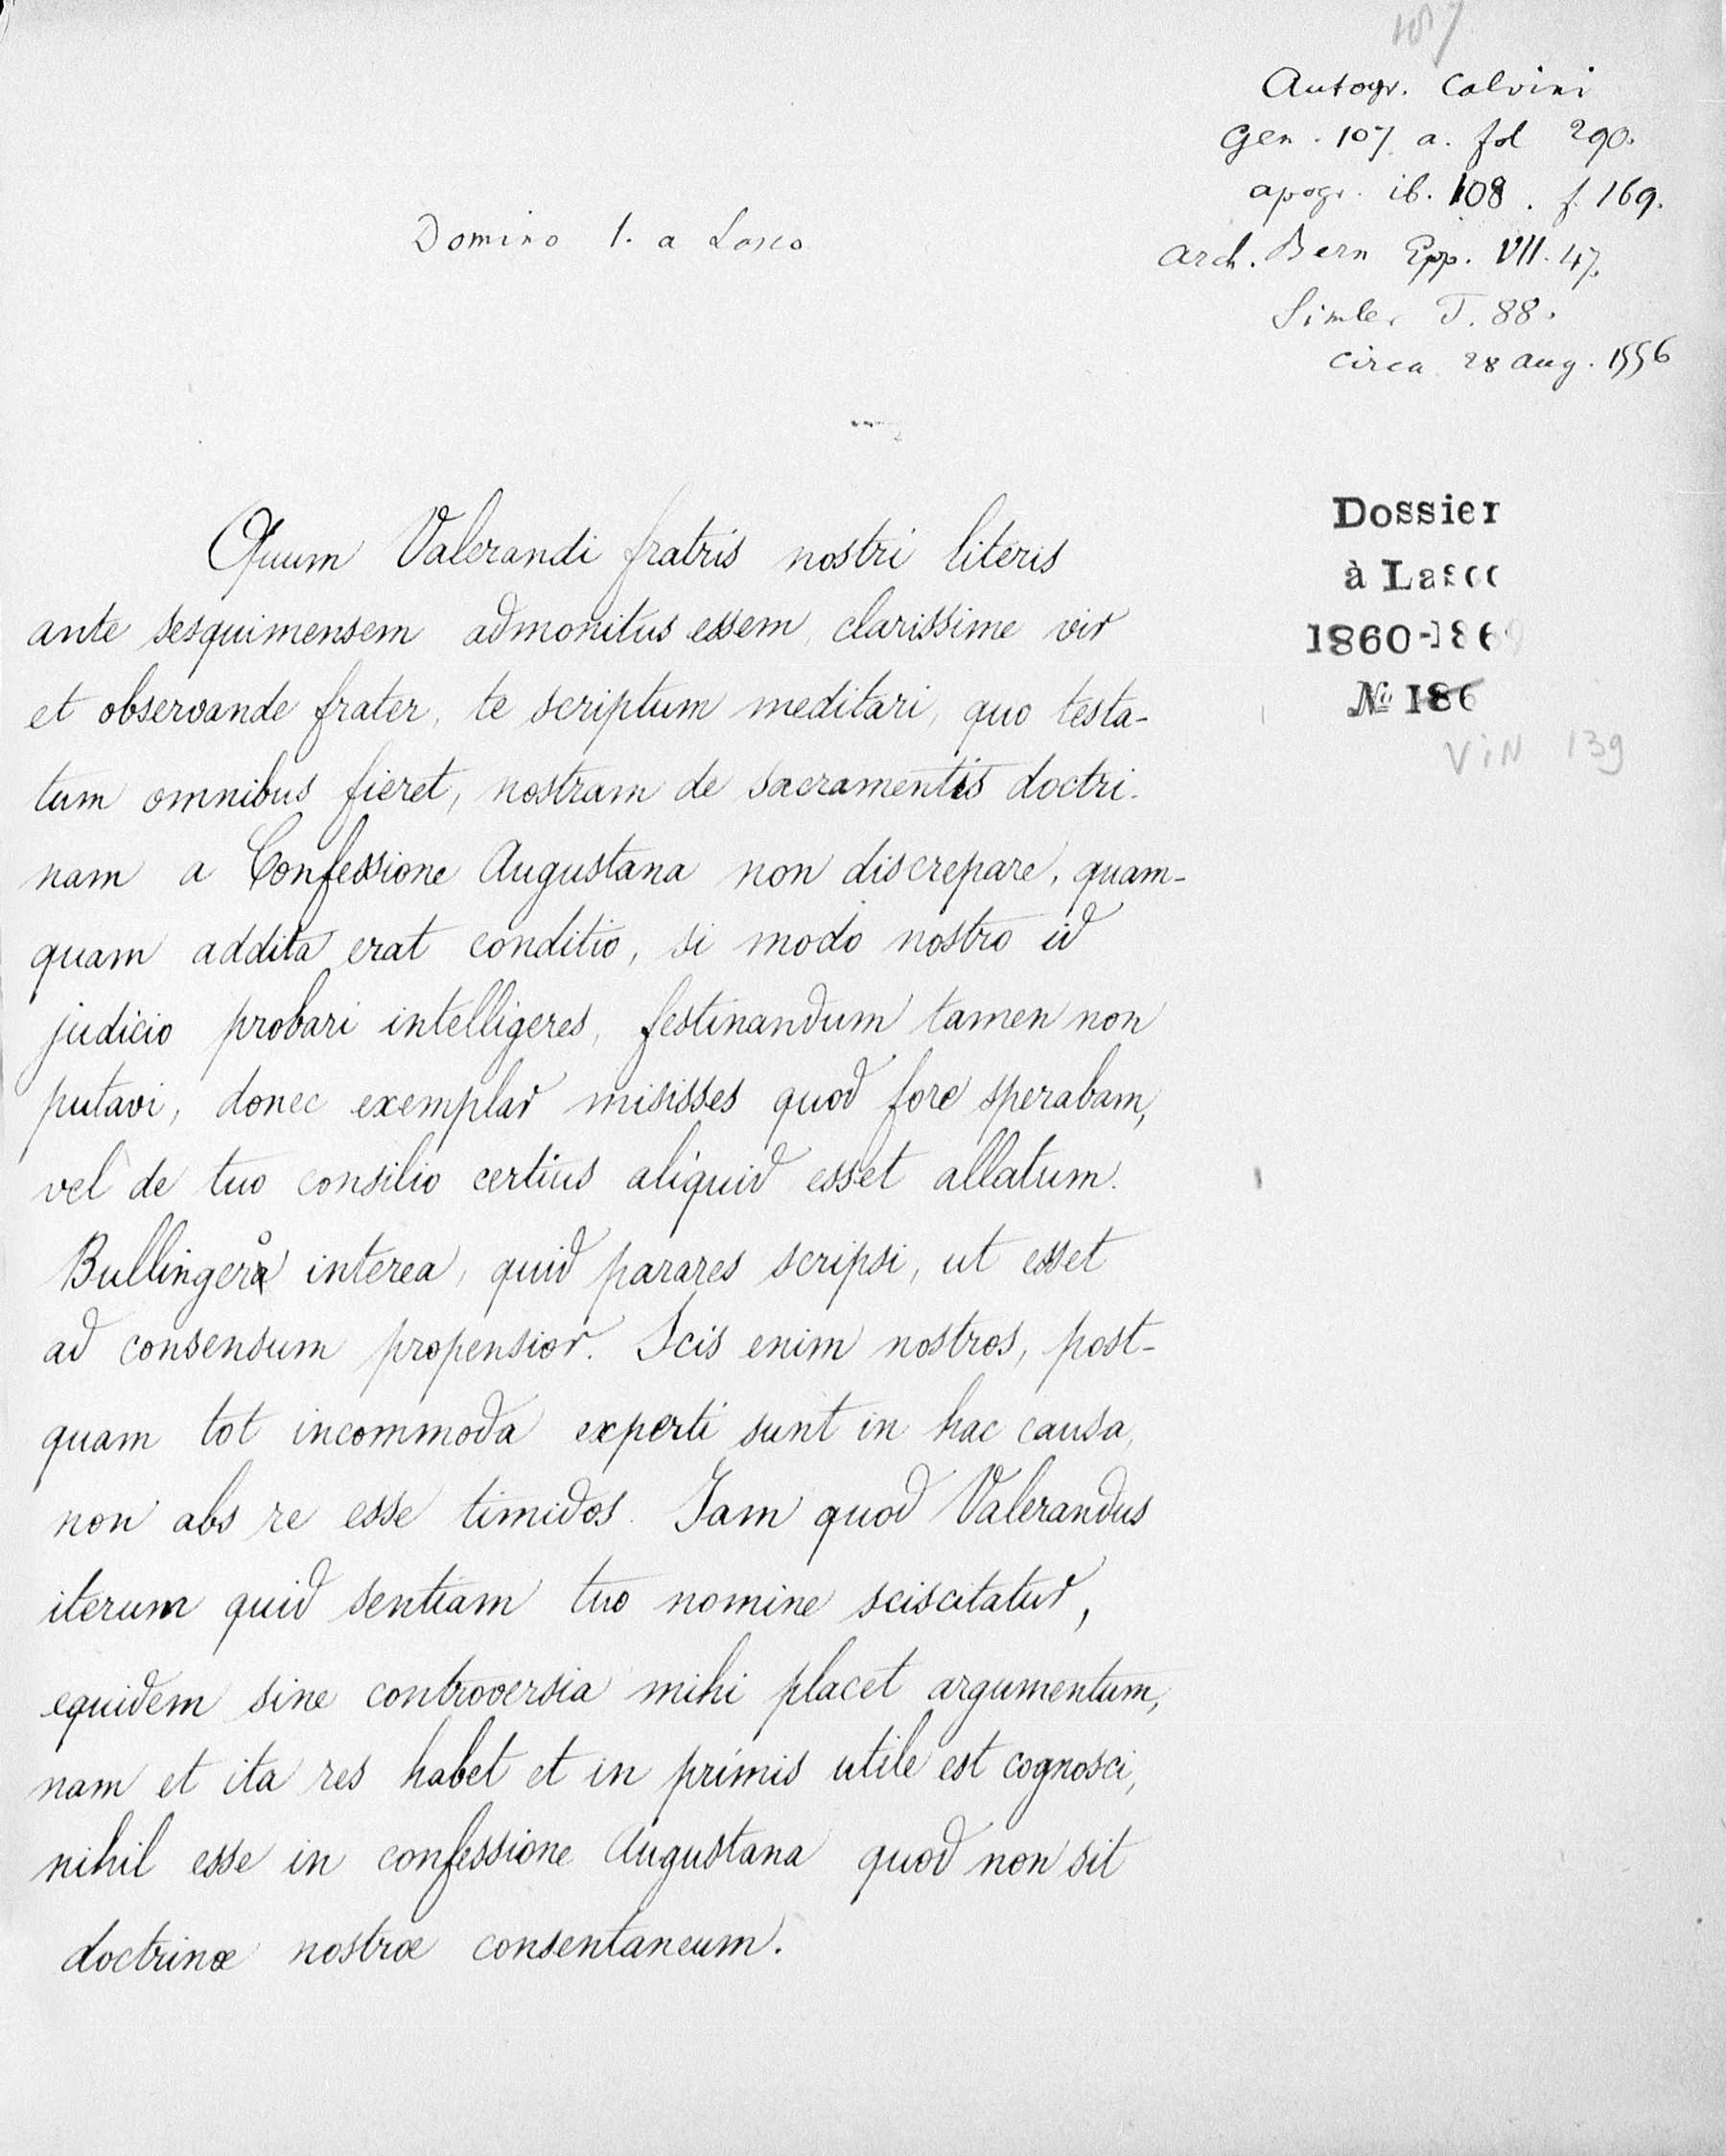 107
Autogr. Calvini
Gen. 107 a. fol 290.
apogr. ib. 108. f. 169.
Arch. Bern Epp. VII. 47.
Simler T. 88.
circa 28 aug. 1556
Domino I. a Lasco
Dossier
à Lasco
1860-1869
No 186
VIN 139
Quum Valerandi fratris nostri literis
ante sesquimensem admonitus essem, clarissime vir
et observande frater, te scriptum meditari, quo testa-
tum omnibus fieret, nostram de sacramentis doctri-
nam a Confessione Augustana non discrepare, quam-
quam addita erat conditio, si modo nostro id
judicio probari intelligeres, festinandum tamen non
putavi, donec exemplar misisses quod fore sperabam,
vel de tuo consilio certius aliquid esset allatum.
Bullingero interea, quid parares scripsi, ut esset
ad consensum propensior. Scis enim nostros, post-
quam tot incommoda experti sunt in hac causa,
non abs re esse timidos. Jam quod Valerandus
iterum quid sentiam tuo nomine sciscitatur,
equidem sine controversia mihi placet argumentum,
nam et ita res habet et in primis utile est cognosci,
nihil esse in confessione Augustana quod non sit
doctrinæ nostræ consentaneum.